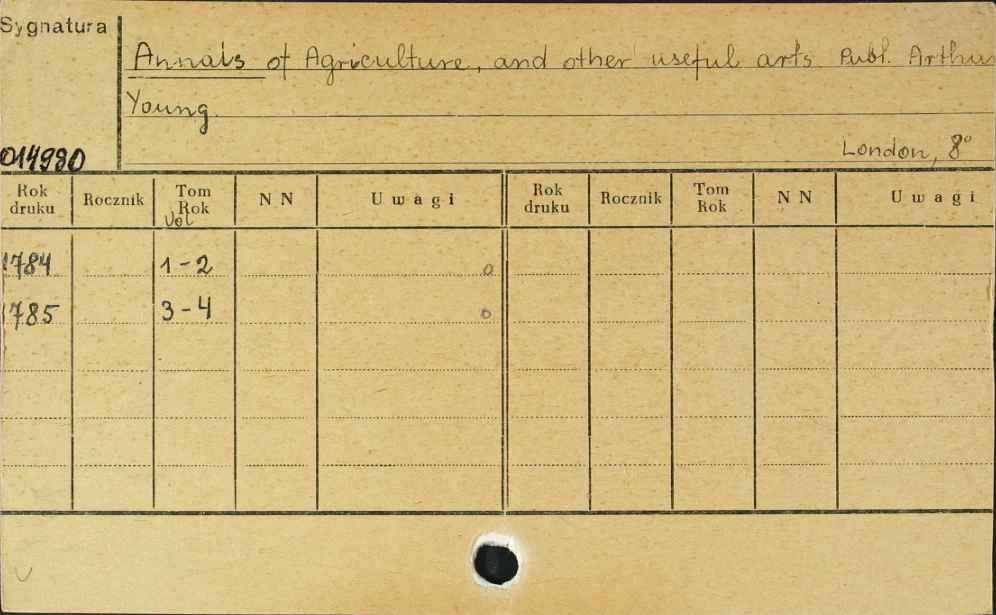 Sygnatura
Annals of Agriculture, and other useful arts. Publ. Arthur
Young.
London, 8°
014980
Rok druku Rocznik Tom Rok Vol N N Uwagi Rok druku Rocznik Tom Rok N N Uwagi
1784 1-2 0
1785 3-4 0